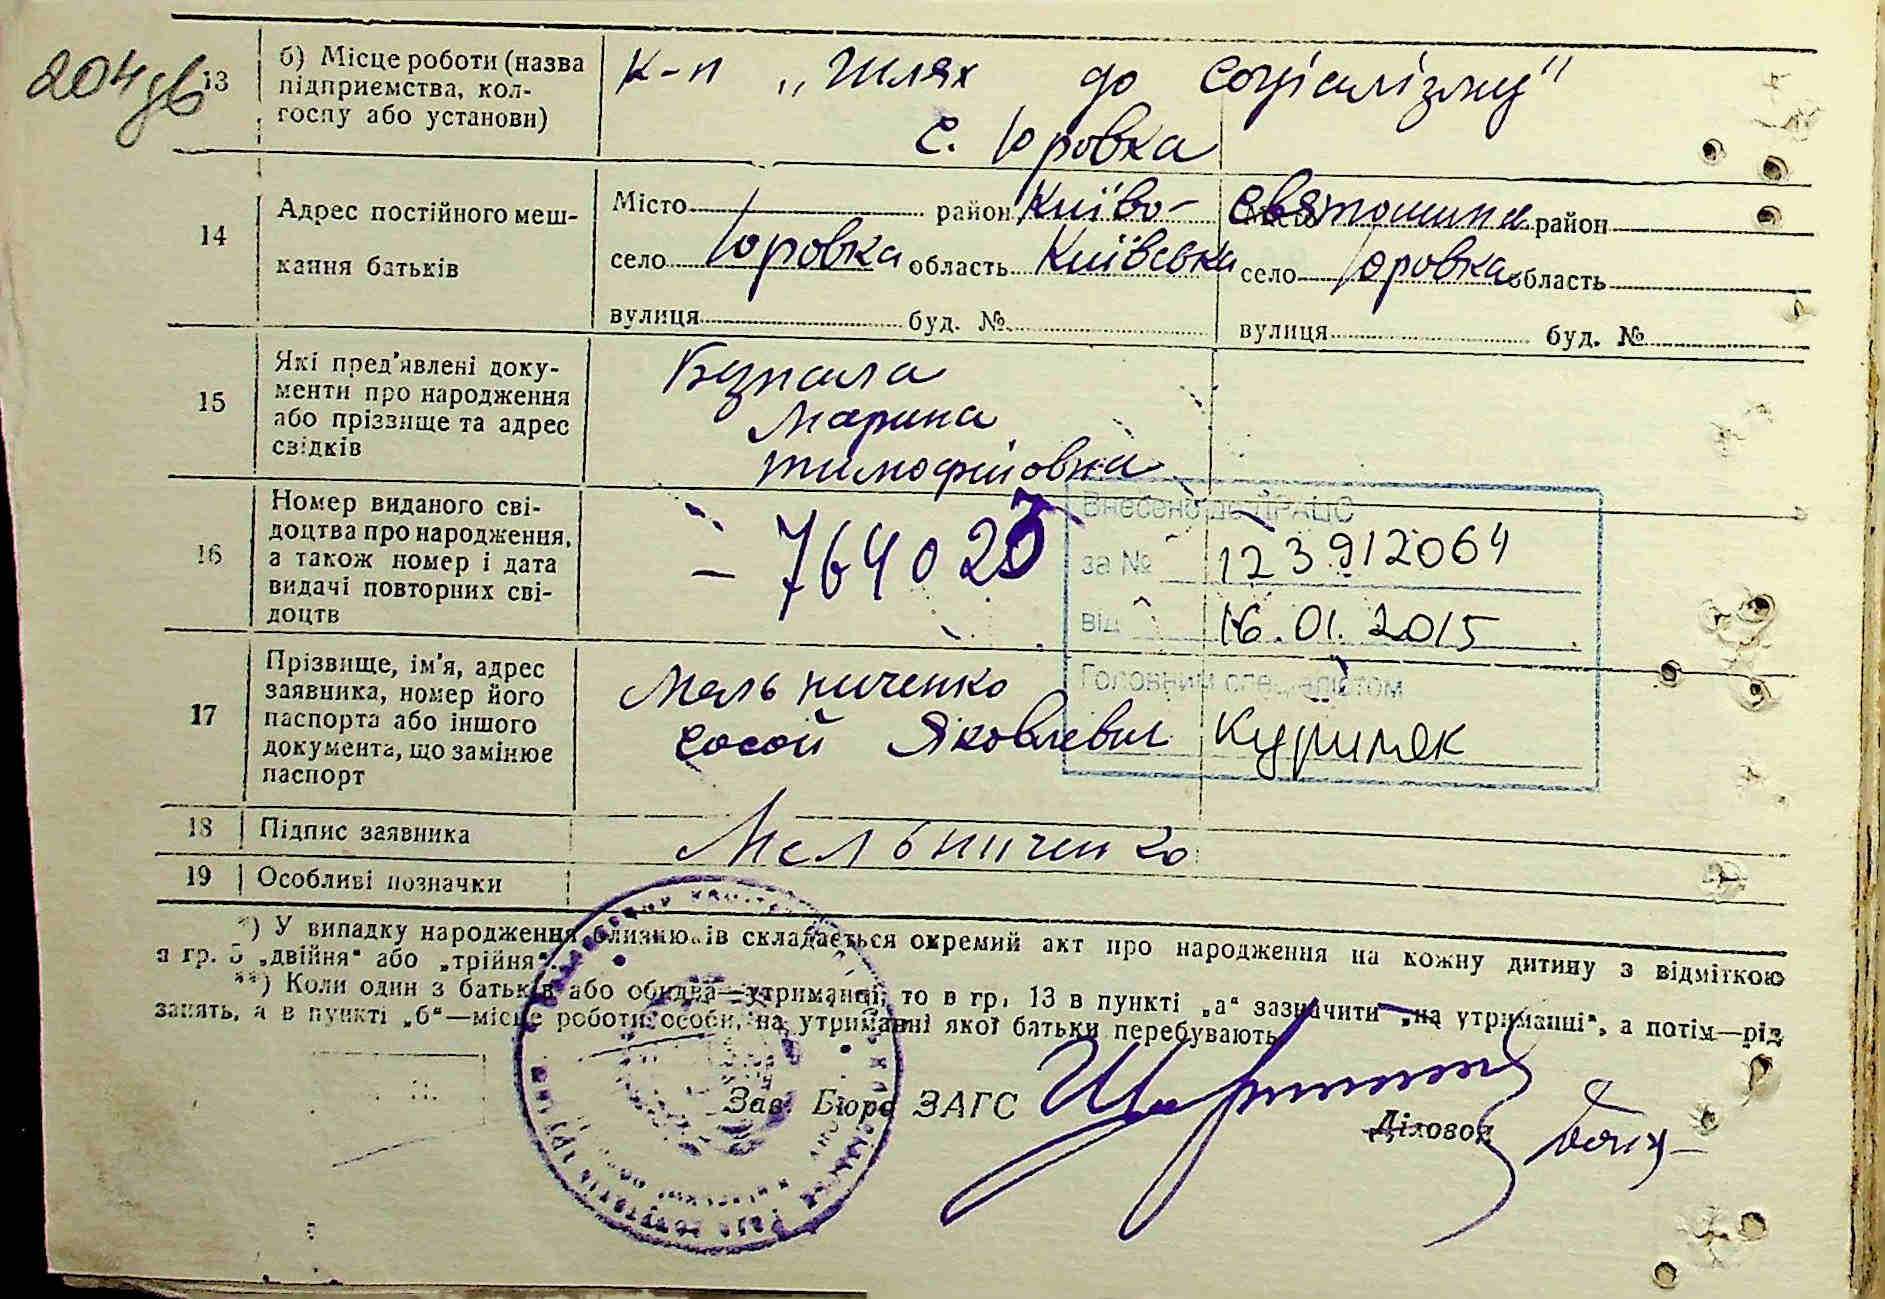 204 зв
13 б) Місце роботи (назва підприємства, колгоспу або установи)
к-п „Шлях до соціалізму"
с. Юровка
14 Адрес постійного мешкання батьків
Місто район Києво- Святошинск Місто район
село Юровка область Київська село Юровка область
вулиця буд. № вулиця буд. №
15 Які пред'явлені документи про народження або прізвище та адрес свідків
Марина
Тимофійовна
16 Номер виданого свідоцтва про народження, а також номер і дата видачі повторних свідоцтв
– 764023
Внесено до ДРАЦС
за № 123912064
від 16.01.2015
Головним спеціалістом
17 Прізвище, ім'я, адрес заявника, номер його паспорта або іншого документа, що замінює паспорт
Мельниченко
Яковлевич
18 Підпис заявника
Мельниченко
19 Особливі позначки
*) У випадку народження близнюків складається окремий акт про народження на кожну дитину з відміткою
в гр. 5 „двійня" або „трійня".
**) Коли один з батьків або обидва—утриманці, то в гр. 13 в пункті „а" зазначити „на утриманні", а потім—рід
занять, а в пункті „б"—місце роботи особи, на утриманні якої батьки перебувають.
Зав. Бюро ЗАГС
Діловод